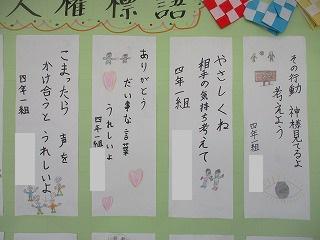 人権標語
その行動 神様見てるよ
考えよう
四年一組
やさしくね
相手の気持ち考えて
四年一組
ありがとう
だい事な言葉
うれしいよ
四年一組
こまったら 声を
かけ合うと うれしいよ
四年一組